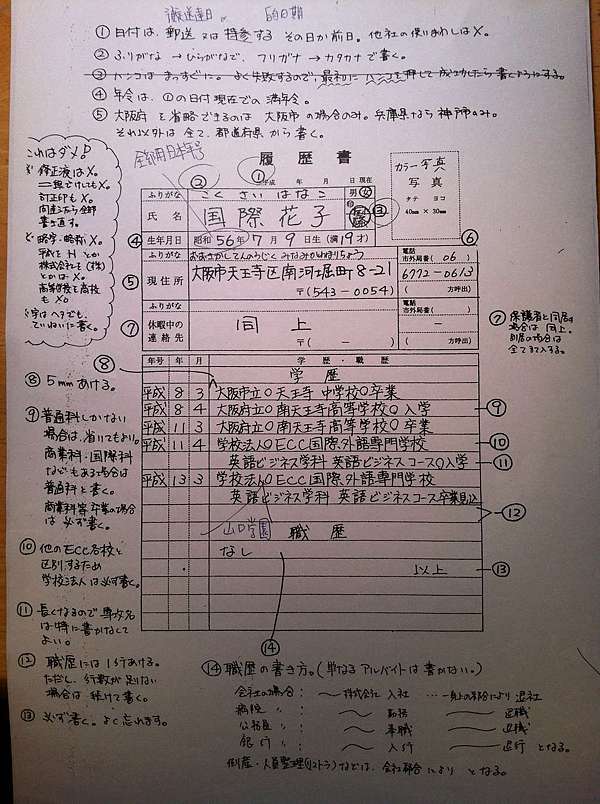 ① 日付は、郵送 又は 持参する その日か前日。他社の使いまわしは X。
② ふりがな → ひらがなで、フリガナ → カタカナで書く。
③ ハンコは まっすぐに。よく失敗するので、最初に ハンコを押して成功したら書くようにする。
④ 年令は、①の日付現在での満年令。
⑤ 大阪府を省略できるのは 大阪市の場合のみ。兵庫県なら神戸市のみ。
それ以外は全て、都道府県から書く。
これはダメ!
修正液は X。
二線でけしても X。
訂正印も X。
間違ったら全部
書き直す。
略字・略称 X。
平成を H とか
株式会社を (株)
とかは X。
高等学校を高校
も X。
字はヘタでも、
ていねいに書く。
履歴書
② ① 平成 年 月 日 現在
ふりがな こくさい はなこ 男 女
氏名 国際 花子 印 ③
④ 生年月日 昭和 56年 7月 9日生 (満 19才)
カラー写真
写真
タテ ヨコ
40mm × 30mm
⑥
ふりがな おおさかしてんのうじく みなみかわほりちょう
⑤ 現住所 大阪市天王寺区南河堀町 8-21
〒(543-0054)
電話
市外局番 (06)
6772-0613
(方呼出)
ふりがな
⑦ 休暇中の連絡先 同上
〒( - )
電話
市外局番 ( )
(方呼出)
⑦ 保護者と同居の
場合は 同上。
別居の場合は
全て記入する。
⑧
年号 年 月 学歴・職歴
学歴
平成 8 3 大阪市立○天王寺 中学校○卒業
平成 8 4 大阪府立○南天王寺高等学校○入学 ⑨
平成 11 3 大阪府立○南天王寺高等学校○卒業
平成 11 4 学校法人○ECC国際外語専門学校 ⑩
英語ビジネス学科 英語ビジネスコース○入学 ⑪
平成 13 3 学校法人○ECC国際外語専門学校
英語ビジネス学科 英語ビジネスコース卒業見込
⑫
山口学園 職歴
なし
以上 ⑬
⑭
⑧ 5mmあける。
⑨ 普通科しかない
場合は、省いてもよい。
商業科・国際科
などもある場合は
普通科と書く。
商業科等卒業の場合
は 必ず書く。
⑩ 他のECC各校と
区別するため
学校法人は必ず書く。
⑪ 長くなるので 専攻名
は特に書かなくて
よい。
⑫ 職歴には1行あける。
ただし、行数が足りない
場合は 続けて書く。
⑬ 必ず書く。よく忘れます。
⑭ 職歴の書き方。(単なるアルバイトは書かない。)
会社の場合: ～ 株式会社 入社 … 一身上の都合により 退社
病院 〃 : ～ 勤務 ～ 退職
公務員 〃 : ～ 奉職 ～ 退職
銀行 〃 : ～ 入行 ～ 退行 となる。
倒産・人員整理(リストラ)などは、会社都合により となる。